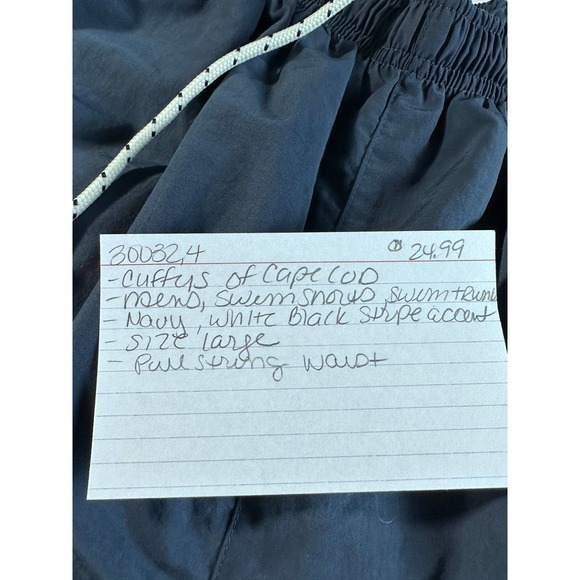 30032,4 24.99
- Cuffys of Cape COD
- mens, swim shorts, swim trunks
- Navy, white black stripe accent
- size large
- Pull string waist